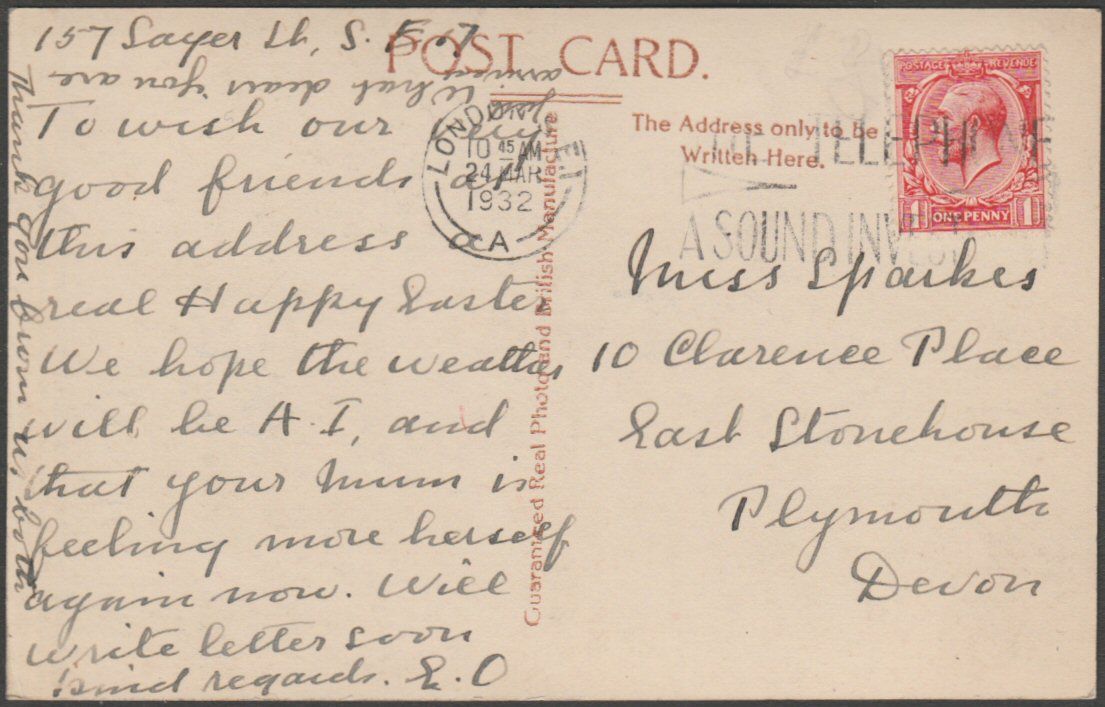 157 Sayer St, S.E.17
POST CARD.
To wish our
good friends at
this address a
real Happy Easter
We hope the weather
will be A.I, and
that your Mum is
feeling more herself
again now. Will
write letter soon
kind regards. E.O
Thank you from us both
What dears you are
just
arrived
LONDON
10 45 AM
24 MAR
1932
A
TELEPHONE
A SOUND INVEST
POSTAGE REVENUE
1 ONE PENNY 1
The Address only to be
Written Here.
Guaranteed Real Photo and British Manufacture
Miss Sparkes
10 Clarence Place
East Stonehouse
Plymouth
Devon